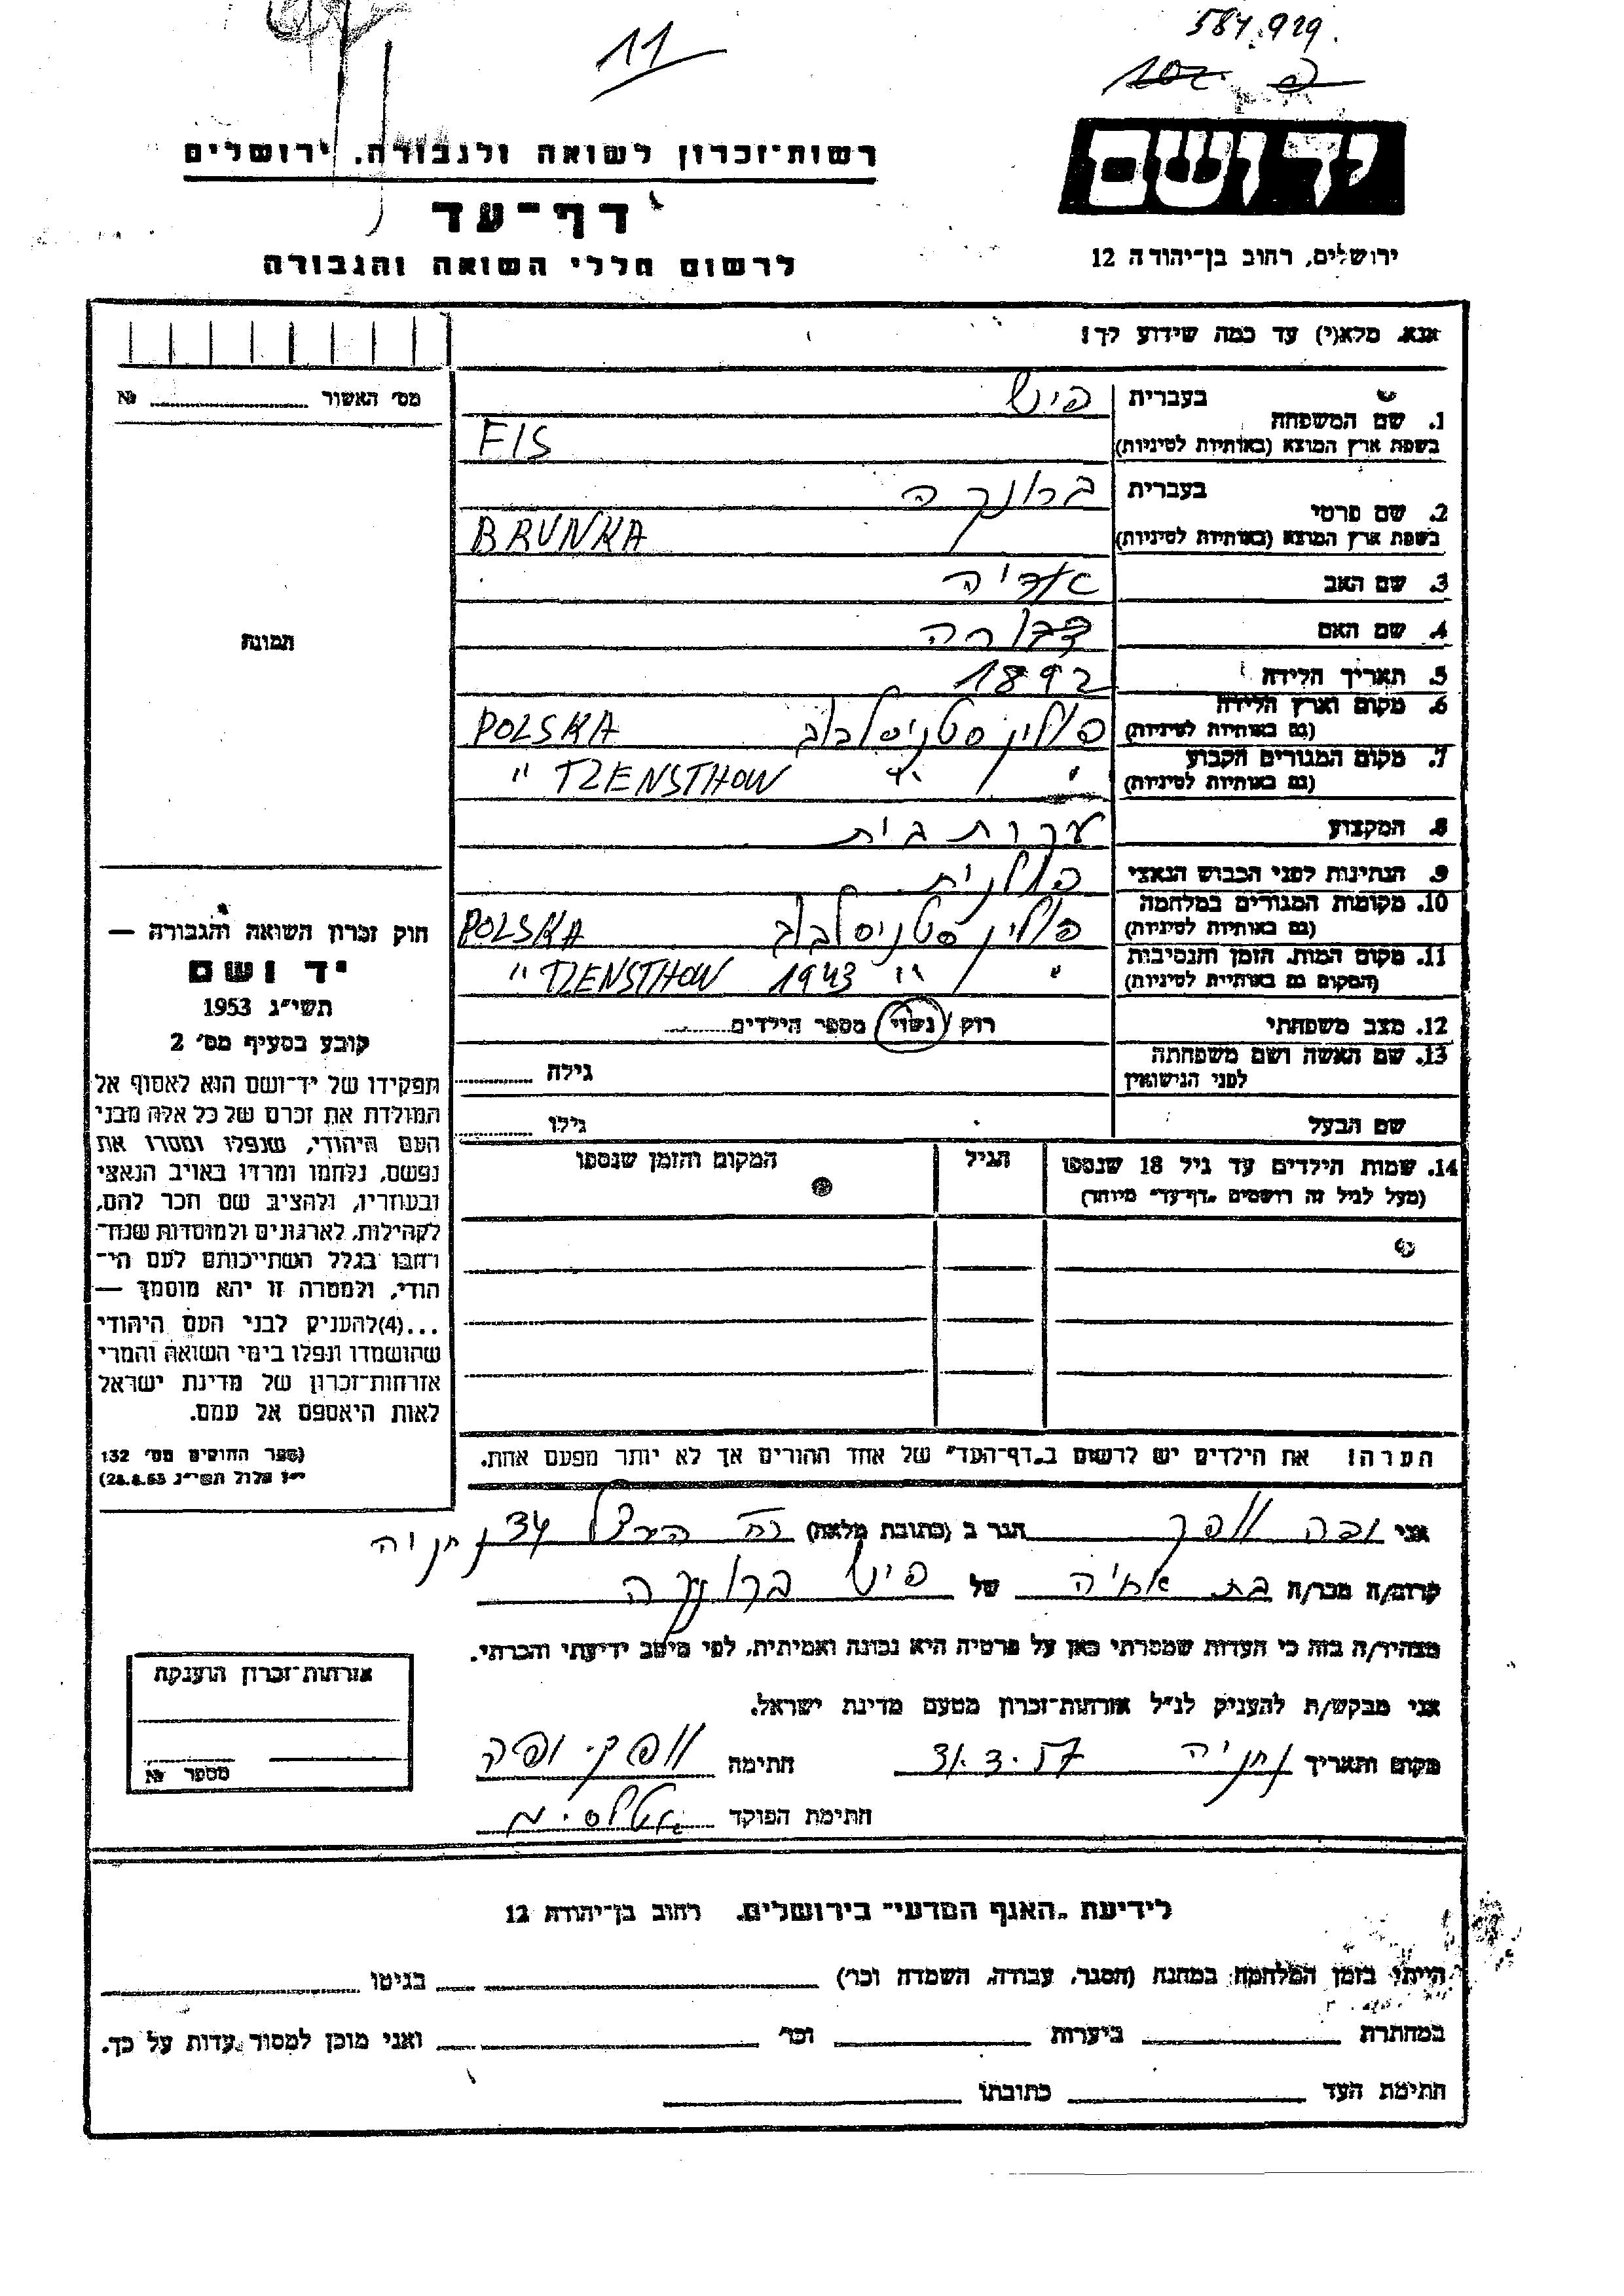 11
584.929
רשות־זכרון לשואה ולגבורה. ירושלים
יד ושם
דף־עד
ירושלים, רחוב בן־יהודה 12
לרשום חללי השואה והגבורה
אנא, מלא(י) עד כמה שידוע לך!
מס׳ האשור № 
תמונה
1. שם המשפחה
בעברית פיש
בשפת ארץ המוצא (באותיות לטיניות) FIS
2. שם פרטי
בעברית ברונקה
בשפת ארץ המוצא (באותיות לטיניות) BRUNKA
3. שם האב אריה
4. שם האם דבורה
5. תאריך הלידה 1892
6. מקום וארץ הלידה פולין סטניסלבוב POLSKA
(גם באותיות לטיניות)
7. מקום המגורים הקבוע " " " TZENSTHOW
(גם באותיות לטיניות)
8. המקצוע עקרת בית
9. הנתינות לפני הכבוש הנאצי פולנית
10. מקומות המגורים במלחמה פולין סטניסלבוב POLSKA
(גם באותיות לטיניות)
11. מקום המות, הזמן והנסיבות " " 1943 " TZENSTHOW
(המקום גם באותיות לטיניות)
12. מצב משפחתי רוק / נשוי מספר הילדים
13. שם האשה ושם משפחתה
לפני הנישואין גילה
שם הבעל גילו
14. שמות הילדים עד גיל 18 שנספו הגיל המקום והזמן שנספו
(מעל לגיל זה רושמים „דף־עד״ מיוחד)
חוק זכרון השואה והגבורה —
יד ושם
תשי״ג 1953
קובע בסעיף מס׳ 2
תפקידו של יד־ושם הוא לאסוף אל
המולדת את זכרם של כל אלה מבני
העם היהודי, שנפלו ומסרו את
נפשם, נלחמו ומרדו באויב הנאצי
ובעוזריו, ולהציב שם וזכר להם,
לקהילות, לארגונים ולמוסדות שנח־
רבו בגלל השתייכותם לעם הי־
הודי, ולמטרה זו יהא מוסמך —
...(4)להעניק לבני העם היהודי
שהושמדו ונפלו בימי השואה והמרי
אזרחות־זכרון של מדינת ישראל
לאות היאספם אל עמם.
(ספר החוקים מס׳ 132
י״ז אלול תשי״ג 28.8.53)
הערה! את הילדים יש לרשום ב„דף־העד״ של אחד ההורים אך לא יותר מפעם אחת.
אני הגר ב (כתובת מלאה) רח הרצל 34 נתניה
קרוב/ה מכר/ה בת אחיה של פיש ברונקה
מצהיר/ה בזה כי העדות שמסרתי כאן על פרטיה היא נכונה ואמיתית, לפי מיטב ידיעתי והכרתי.
אני מבקש/ת להעניק לנ״ל אזרחות־זכרון מטעם מדינת ישראל.
מקום ותאריך נתניה 31.3.57 חתימה
חתימת הפוקד
אזרחות־זכרון הוענקה
מספר №
לידיעת „האגף המדעי״ בירושלים. רחוב בן־יהודה 12
הייתי בזמן המלחמה במחנה (הסגר, עבודה, השמדה וכו׳) בגיטו
במחתרת ביערות וכו׳ ואני מוכן למסור עדות על כך.
חתימת העד כתובתו